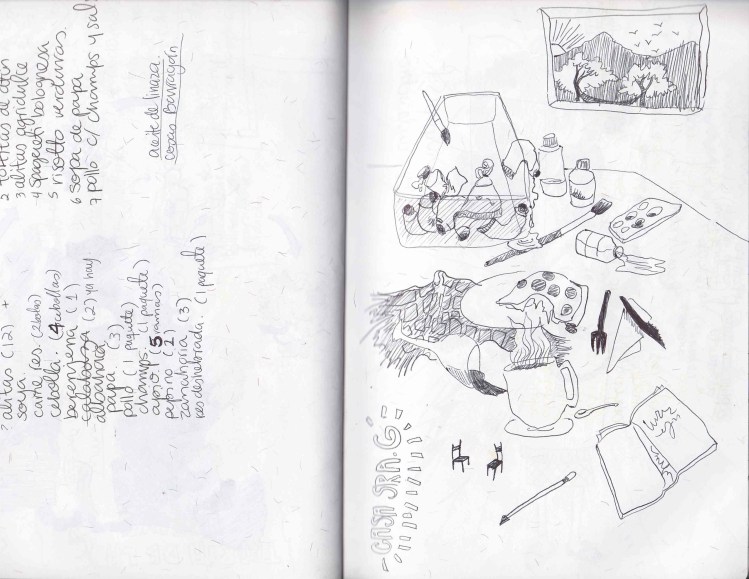 2 tortitas de atún
3 alitas agridulce
4 spaguetti bolognesa
5 risotto verduras
6 sopa de papa
7 pollo c/ champs y sal
aceite de linaza
copas
alitas (12) +
soya
carne res. (2 bolas)
cebolla. (4 cebollas)
berenjena (1)
calabaza (2) ya hay
albahaca
papa (3)
pollo (1 paquete)
champs. (1 paquete)
apio (5 ramas)
pepino (2)
zanahoria (3)
res deshebrada. (1 paquete)
CASA SRA. G